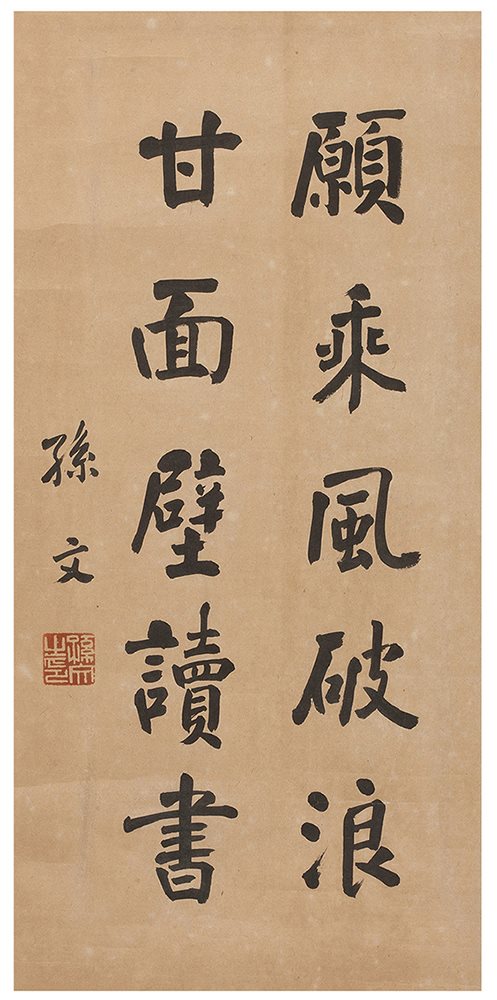 願乘風破浪
甘面壁讀書
孫文
孫文之印